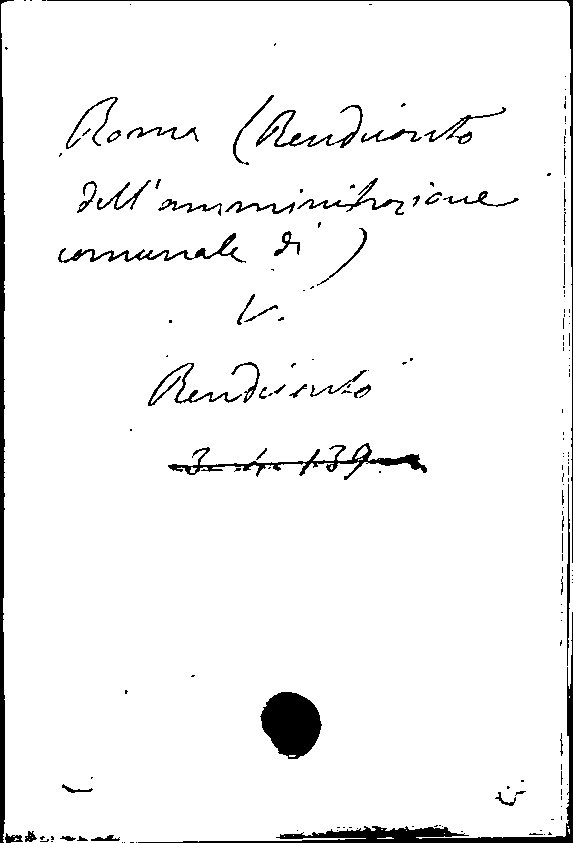 Roma (Rendiconto
dell'amministrazione
comunale di)
V.
Rendiconto
3. 4. 139